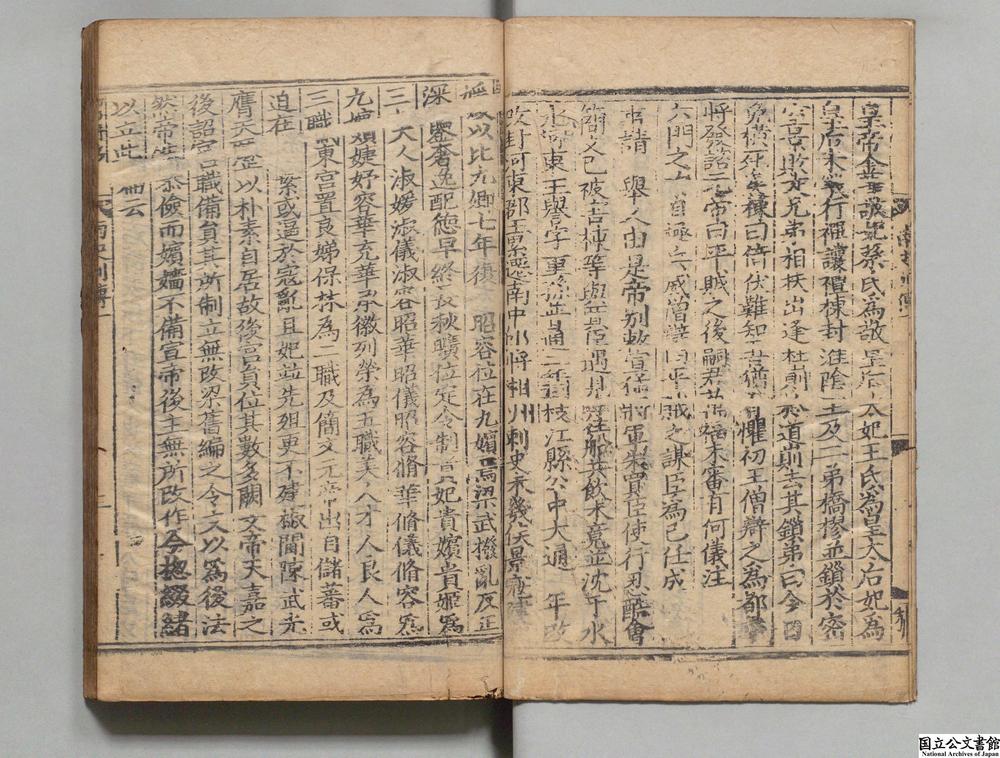 皇帝金華敬妃蔡氏爲敬皇后太妃王氏爲皇太后妃爲
皇后未幾行禪讓禮棟封淮陰王及二弟橋樛並鎖於密
室景敗走兄弟相扶出逢杜崱於道崱去其鎖弟曰今日
免橫死矣棟曰倚伏難知吾猶有懼初王僧辯之爲都督
將發諮元帝曰平賊之後嗣君萬福未審有何儀注
六門之内自極兵威僧辯曰平賊之謀臣爲己任成
濟之事請舉人由是帝別敕宣猛將軍朱買臣使行忍酷會
簡文已被害棟等與買臣遇見呼往船共飲未竟並沈于水
河東王譽字重孫普通二年封枝江縣公中大通三年改
改封河東郡王累遷南中郎將湘州刺史未幾侯景寇建
以比九卿七年復 昭容位在九嬪焉梁武撥亂反正
深鑒奢逸配德早終長秋曠位定令制貴妃貴嬪貴姬爲
三夫人淑媛淑儀淑容昭華昭儀昭容脩華脩儀脩容爲
九嬪婕妤容華充華承徽列榮爲五職美人才人良人爲
三職東宮置良娣保林爲二職及簡文元帝出自儲蕃或
迫在 縶或逼於寇亂且妃並先殂更不建椒閫陳武光
膺天歷以朴素自居故後宮員位其數多闕文帝天嘉之
後詔宮職備員其所制立無改梁舊編之令文以爲後法
然帝性恭儉而嬪嬙不備宣帝後主無所改作今總綴緖
以立此篇云
南史列傳一
国立公文書館
National Archives of Japan